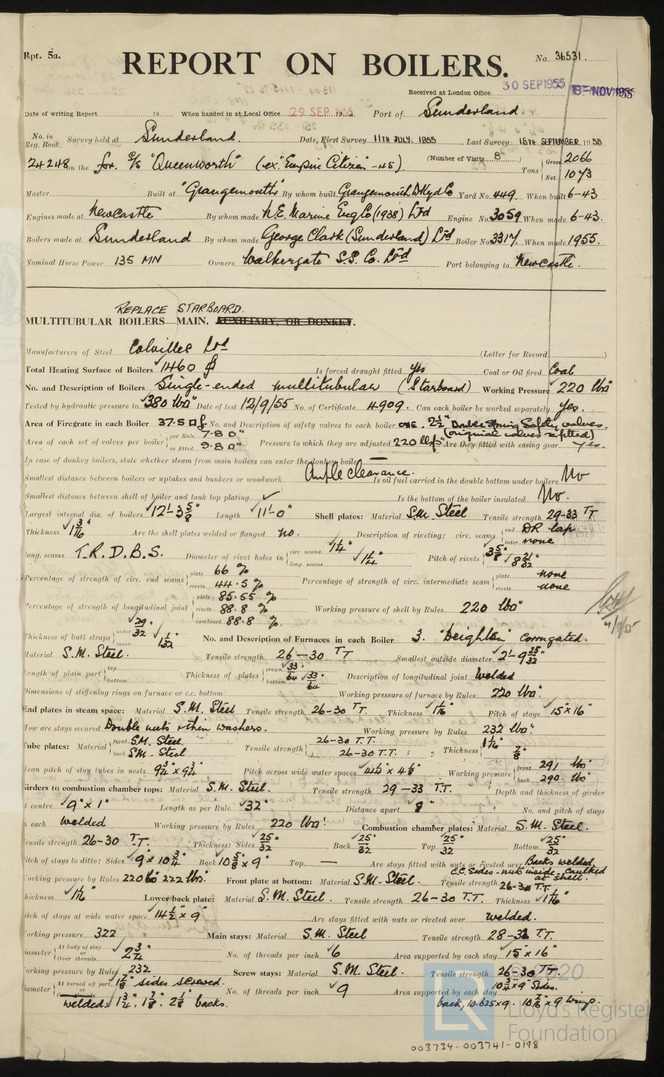 Rpt. 5a.
No. 36531.
REPORT ON BOILERS.
30 SEP 1955
Received at London Office
Date of writing Report 19 When handed in at Local Office 29 SEP 1955 Port of Sunderland.
No. in Reg. Book. Survey held at Sunderland. Date, First Survey 11TH JULY, 1955 Last Survey 15TH SEPTEMBER 1955
24248 on the for. S/S "Queenworth" (ex "Empire Citizen" -45) (Number of Visits 8) Tons Gross 2066 Net 1073
Master Built at "Grangemouth" By whom built Grangemouth D.Yd Co Yard No. 449. When built 6-43
Engines made at Newcastle By whom made N.E. Marine Eng Co (1938) Ltd Engine No. 3059 When made 6-43.
Boilers made at Sunderland By whom made George Clark (Sunderland) Ltd Boiler No. 3317 When made 1955.
Nominal Horse Power 135 MN Owners Walkergate S.S. Co. Ltd Port belonging to Newcastle.
REPLACE STARBOARD.
MULTITUBULAR BOILERS MAIN, AUXILIARY, OR DONKEY.
Manufacturers of Steel Colvilles Ltd (Letter for Record
Total Heating Surface of Boilers 1460 Is forced draught fitted yes Coal or Oil fired Coal
No. and Description of Boilers Single-ended multitubular (Starboard) Working Pressure 220 lbs
Tested by hydraulic pressure to 380 lbs Date of test 12/9/55 No. of Certificate 4909. Can each boiler be worked separately yes.
Area of Firegrate in each Boiler 37.5 No. and Description of safety valves to each boiler one. 2½" Double Spring Safety valves.
(original valves refitted)
Area of each set of valves per boiler per Rule 7.80 as fitted 9.80 Pressure to which they are adjusted 220 Are they fitted with easing gear yes.
In case of donkey boilers, state whether steam from main boilers can enter the donkey boiler
Smallest distance between boilers or uptakes and bunkers or woodwork Ample clearance. Is oil fuel carried in the double bottom under boilers No
Smallest distance between shell of boiler and tank top plating Is the bottom of the boiler insulated No.
Largest internal dia. of boilers 12'-3⅝" Length 11'-0" Shell plates: Material S.M. Steel Tensile strength 29-33 TT.
Thickness 1 3/16 Are the shell plates welded or flanged no. Description of riveting: circ. seams end DR lap inter none
long. seams T.R.D.B.S. Diameter of rivet holes in circ. seams 1¼" long. seams 1¼" Pitch of rivets
Percentage of strength of circ. end seams plate 66 % rivets 44.5 % Percentage of strength of circ. intermediate seam plate none rivets none
Percentage of strength of longitudinal joint plate 85.55 % rivets 88.8 % combined 88.8 % Working pressure of shell by Rules 220 lbs
Thickness of butt straps outer 29/32 inner 1 1/32 No. and Description of Furnaces in each Boiler 3. "Deighton" Corrugated.
Material S.M. Steel Tensile strength 26-30 TT Smallest outside diameter 2'-9 25/32
Length of plain part top bottom Thickness of plates crown 33/64 bottom 33/64 Description of longitudinal joint Welded
Dimensions of stiffening rings on furnace or c.c. bottom Working pressure of furnace by Rules 220 lbs.
End plates in steam space: Material S.M. Steel Tensile strength 26-30 T.T. Thickness 1 1/16 Pitch of stays 15" x 16"
How are stays secured Double nuts & thin washers. Working pressure by Rules 232 lbs"
Tube plates: Material front S.M. Steel back S.M. Steel Tensile strength 26-30 T.T. 26-30 T.T. Thickness 1 1/16 7/8"
Mean pitch of stay tubes in nests 9¾" x 9¾" Pitch across wide water spaces Working pressure front 291 lbs back 290 lbs
Girders to combustion chamber tops: Material S.M. Steel. Tensile strength 29-33 TT. Depth and thickness of girder
at centre 9" x 1" Length as per Rule 32" Distance apart 8" No. and pitch of stays
in each welded Working pressure by Rules 220 lbs Combustion chamber plates: Material S.M. Steel.
Tensile strength 26-30 TT. Thickness: Sides 25/32 Back 25/32 Top 25/32 Bottom 25/32
Pitch of stays to ditto: Sides 9 x 10¾" Back 10⅝ x 9" Top — Are stays fitted with nuts or riveted over Backs welded,
C.C. sides - nuts inside - caulked at shell.
Working pressure by Rules 220 & 222 lbs. Front plate at bottom: Material S.M. Steel. Tensile strength 26-30 TT.
Thickness 1 1/16 Lower back plate: Material S.M. Steel. Tensile strength 26-30 TT. Thickness 1 1/16"
Pitch of stays at wide water space 14½" x 9" Are stays fitted with nuts or riveted over welded.
Working pressure 322 Main stays: Material S.M. Steel Tensile strength 28-32 T.T.
Diameter At body of stay or Over threads 2¾" No. of threads per inch 6 Area supported by each stay 15" x 16"
Working pressure by Rules 232 Screw stays: Material S.M. Steel. Tensile strength 26-30 TT.
Diameter At turned off part or Over threads 1⅞" sides screwed. No. of threads per inch 9 Area supported by each stay 10¾ x 9" Sides.
welded: 1¾", 1⅞", 2⅛" backs. back, 10.625 x 9. x 9 wing.
LR
2020
Lloyd's Register
Foundation
003734-003741-0198